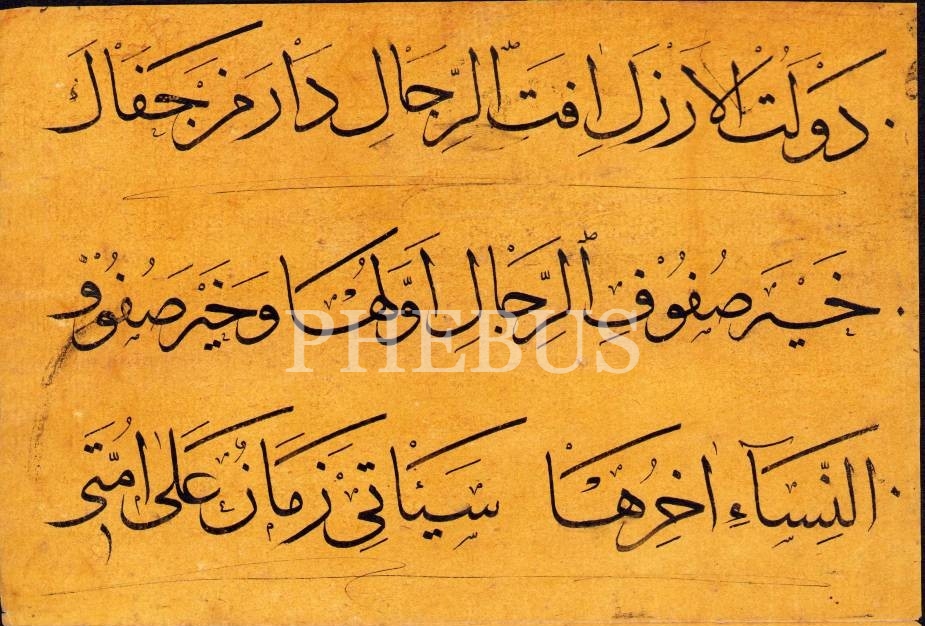 دَوْلَتُ الْارَزَلِ اٰفَتُ الرِّجَالِ دَارَ مَنْ جَفَالَ
خَيْرَ صُفُوفِ الرِّجَالِ اَوَّلُهَا وَخَيْرَ صُفُوفِ
النِّسَآءِ اٰخِرُهَا سَيَاْتِى زَمَانٌ عَلٰى اُمَّتِى
PHEBUS